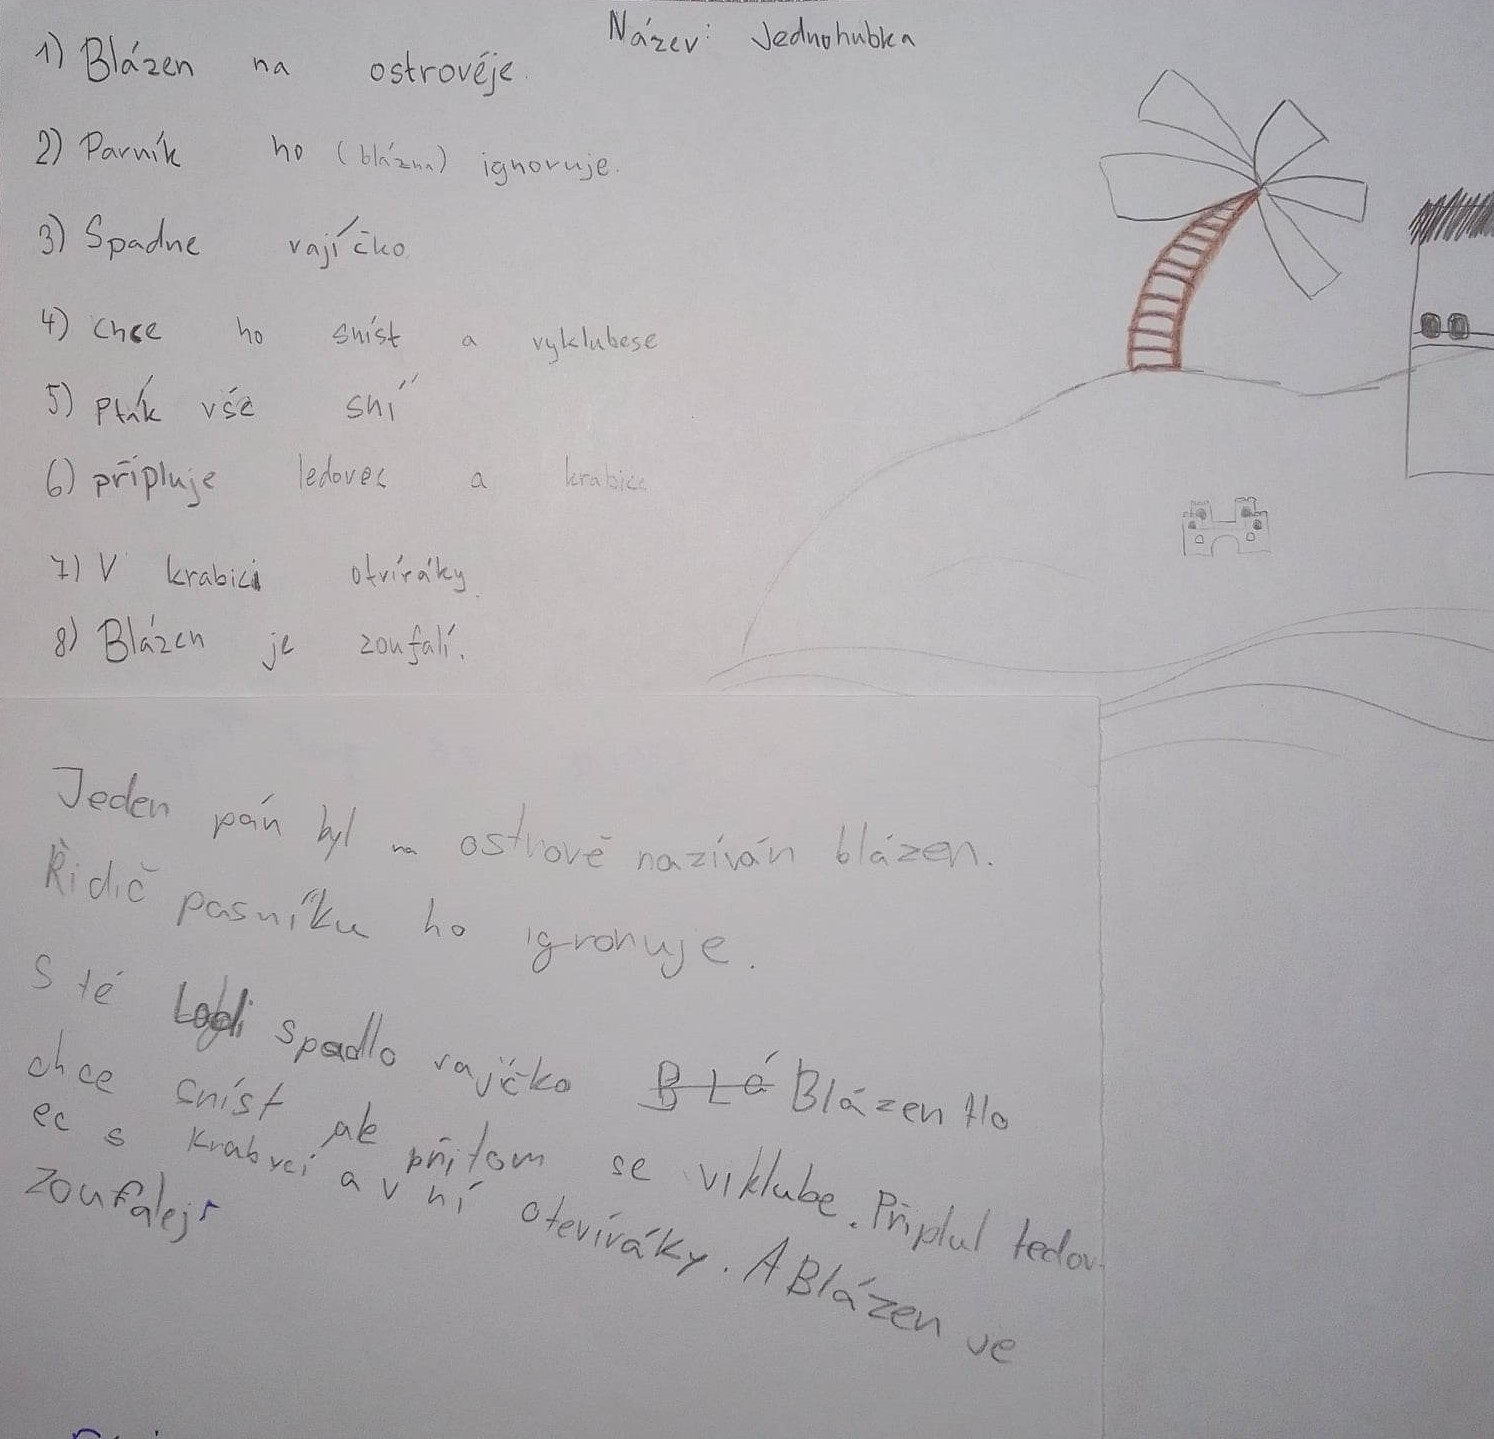 Název: Jednohubka
1) Blázen na ostrověje.
2) Parník ho (blázna) ignoruje.
3) Spadne vajíčko.
4) Chce ho sníst a vyklubese
5) Pták vše sní
6) připluje ledovec a krabice
7) V krabici otvíráky.
8) Blázen je zoufalí.
Jeden pán byl na ostrově nazíván blázen.
Řidič pasníku ho igronuje.
S té Lodi spadlo vajíčko B L á Blázen Ho
chce sníst ale přitom se viklube. Připlul ledov-
ec s krabicí a v ní otevíráky. A Blázen ve
zoufalej